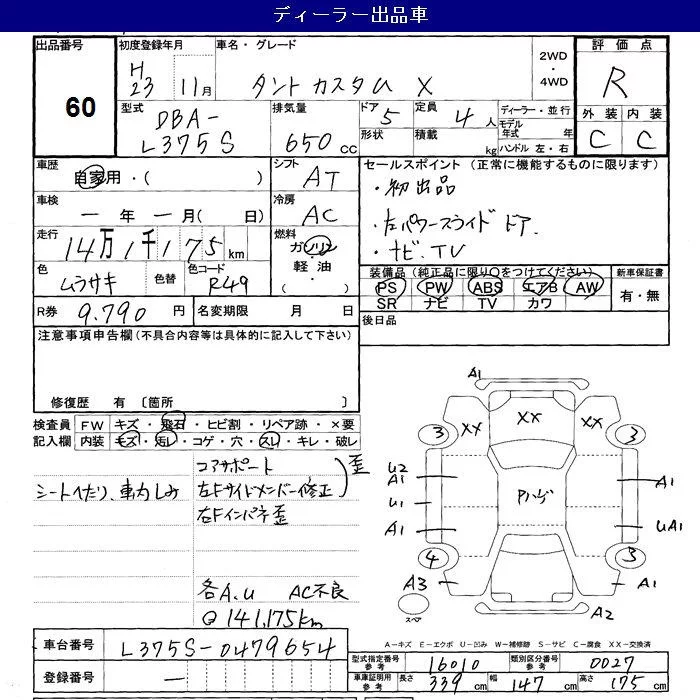 ディーラー出品車
出品番号 初度登録年月 車名・グレード 2WD ・ 4WD 評価点
60 H23 年 11月 タント カスタム X R
型式 排気量 ドア 定員 ディーラー・並行 外装 内装
DBA-L375S 650 cc 5 4人 モデル年式 年 C C
形状 積載 kg ハンドル 左・右
車歴 シフト セールスポイント (正常に機能するものに限ります)
自家用・( ) AT ・初出品
車検 冷房
ー年ー月( 日) AC ・左パワースライドドア
走行 燃料 ・ナビ.TV
14万1千175km ガソリン
軽油・
( )
色 色替 色コード 装備品 (純正品に限り〇をつけてください) 新車保証書
ムラサキ R49 PS PW ABS エアB AW 有・無
SR ナビ TV カワ
R券 9.790円 名変期限 月 日 後日品
注意事項申告欄(不具合内容等は具体的に記入して下さい)
修復歴 有 〔箇所 〕
検査員 FW キズ・飛石・ヒビ割・リペア跡・×要
記入欄 内装 キズ・汚レ・コゲ・穴・スレ・キレ・破レ
コアサポート 歪
シートへたり、車内しみ 左Fサイドメンバー修正
右Fインパネ歪
各A.U AC不良
Q 141,175km
A1
XX XX XX
3 3
U2
A1 A1
U1 Pハゲ
A1 UA1
4 3
A3 A1
スペア A2
A-キズ E-エクボ U-凹み W-補修跡 S-サビ C-腐食 XX-交換済
車台番号 L375S-0479654
型式指定番号 参考 16010 類別区分番号 参考 0027
登録番号 ー
車庫証明用 参考 長さ 339cm 幅 147cm 高さ 175cm